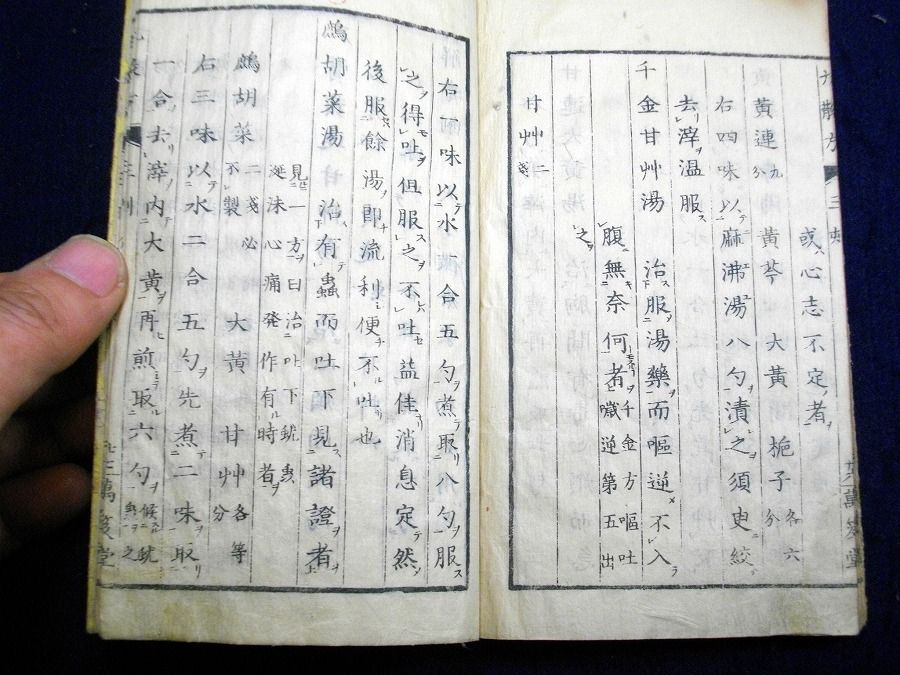 或心志不定者
黃連九分 黃芩 大黃 梔子各六分
右四味以麻沸湯八勺漬之須臾絞
去滓溫服
千金甘艸湯 治服湯藥而嘔逆不入
腹無奈何者千金方嘔吐噦逆第五出
之
甘艸二戔
右一味以水一合五勺煮取八勺服
之得吐但服之不吐益佳消息定然
後服餘湯即流利便不吐也
鷓胡菜湯 治有蟲而吐下見諸證者
見一方曰治吐下蚘蟲
涎沫心痛發作有時者
鷓胡菜二戔必不製 大黃 甘艸各等分
右三味以水二合五勺先煮二味取
一合去滓內大黃再煎取六勺候蚘蟲之
丸散方 三
萬笈堂
萬笈堂